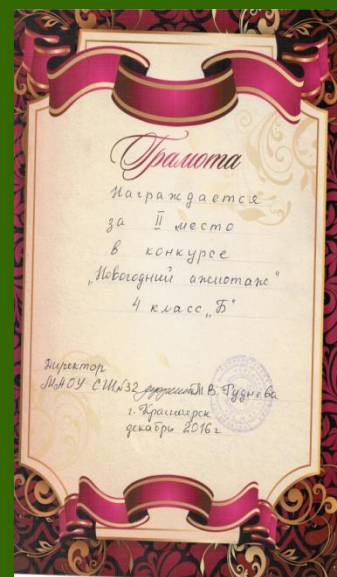 Грамота
Награждается
за II место
в конкурсе
„Новогодний ажиотаж“
4 класс „Б“
Директор
МАОУ СШ№32 М.В. Гуднева
г. Красноярск
декабрь 2016г